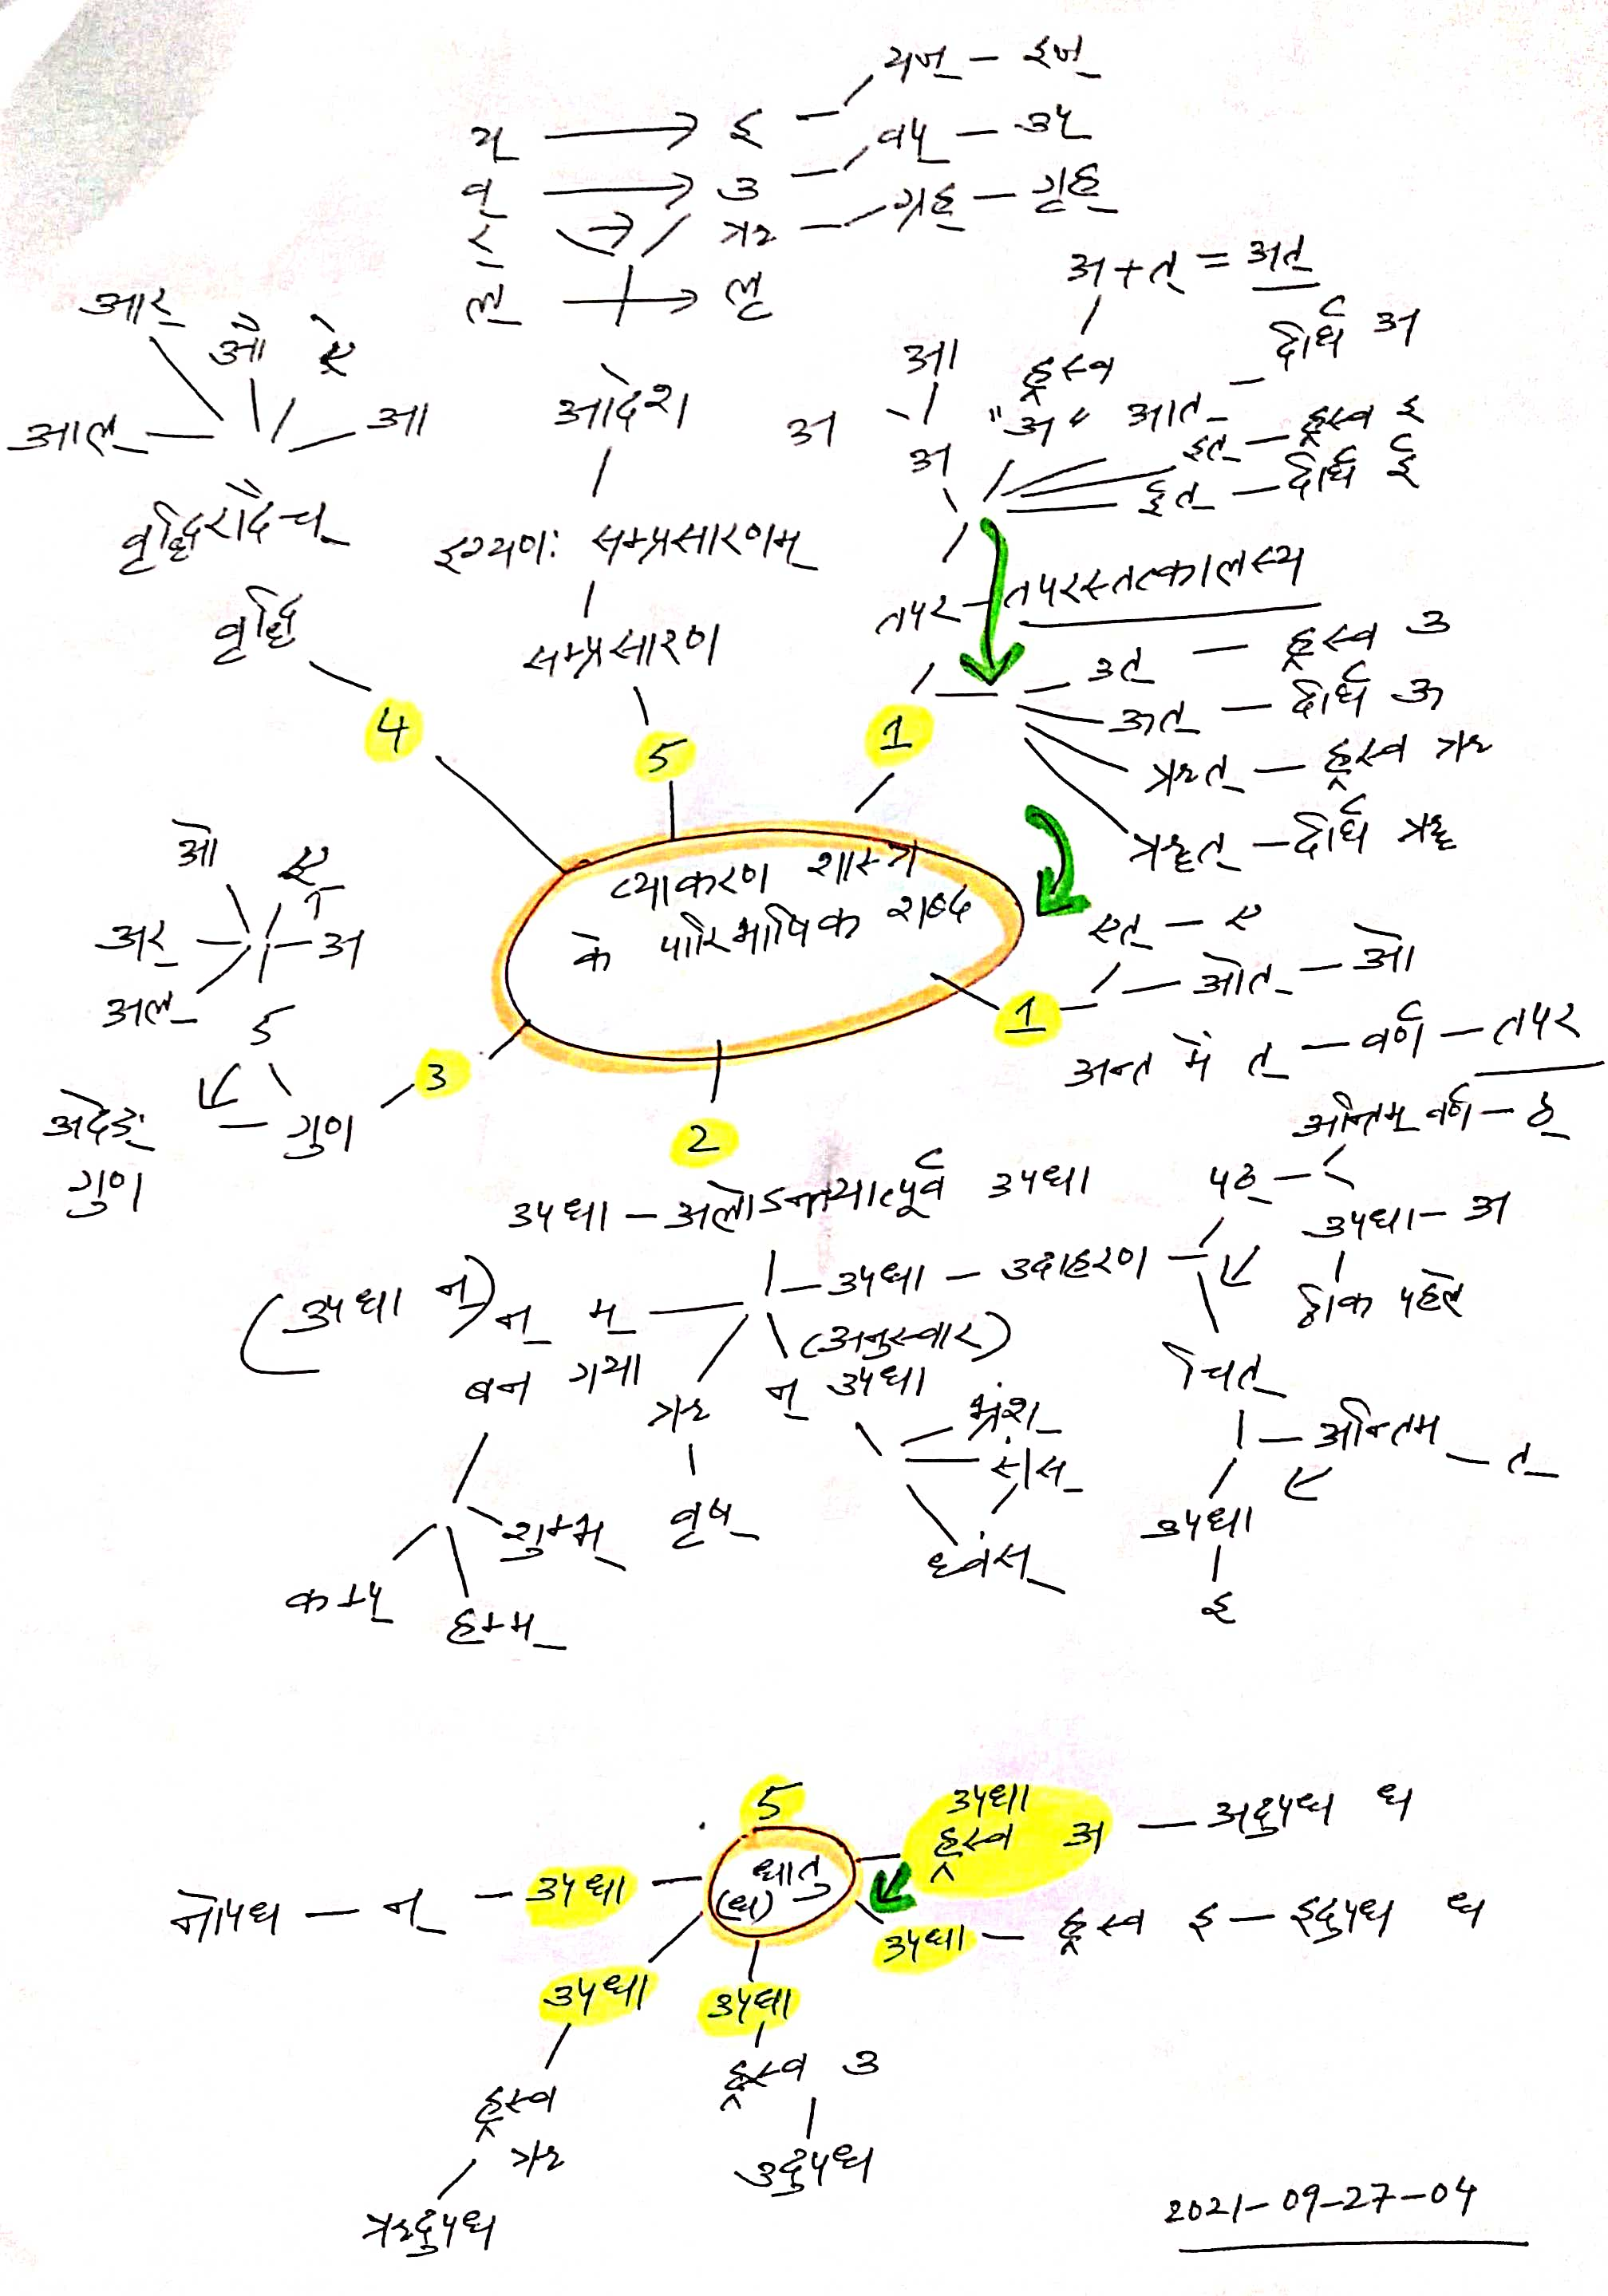 यज् — इज्
य् → इ
वप् — उप्
व् → उ
ग्रह् — गृह्
र् → ऋ
ल् → लृ
अ + त् = अत्
आर्
औ ऐ
आल्
आ
आदेश
आ
अ
अ
ह्रस्व
"अ"
आत् — दीर्घ अ
इत् — ह्रस्व इ
ईत् — दीर्घ ई
वृद्धिरादैच्
इग्यणः सम्प्रसारणम्
तपर — तपरस्तत्कालस्य
वृद्धि
सम्प्रसारण
उत् — ह्रस्व उ
ऊत् — दीर्घ ऊ
ऋत् — ह्रस्व ऋ
ॠत् — दीर्घ ॠ
4
5
1
व्याकरण शास्त्र
के पारिभाषिक शब्द
ओ
ए
अर्
अ
अल्
5
एत् — ए
ओत् — ओ
1
अन्त में त् — वर्ण — तपर
3
अदेङ्
गुण
गुण
2
अन्तिम वर्ण — ठ्
उपधा — अलोऽन्त्यात्पूर्व उपधा
पठ्
उपधा — अ
ठीक पहले
उपधा — उदाहरण
(उपधा न्) न् म्
बन गया
(अनुस्वार)
न् उपधा
ऋ
वृष्
भ्रंश्
स्रंस्
ध्वंस्
चित्
अन्तिम — त्
उपधा
इ
शुम्भ्
कम्प्
हम्म्
5
धातु
(ध)
उपधा
ह्रस्व अ — अदुपध ध
उपधा — ह्रस्व इ — इदुपध ध
नोपध — न् — उपधा
उपधा
उपधा
ह्रस्व
ऋ
ऋदुपध
ह्रस्व उ
उदुपध
2021-09-27-04